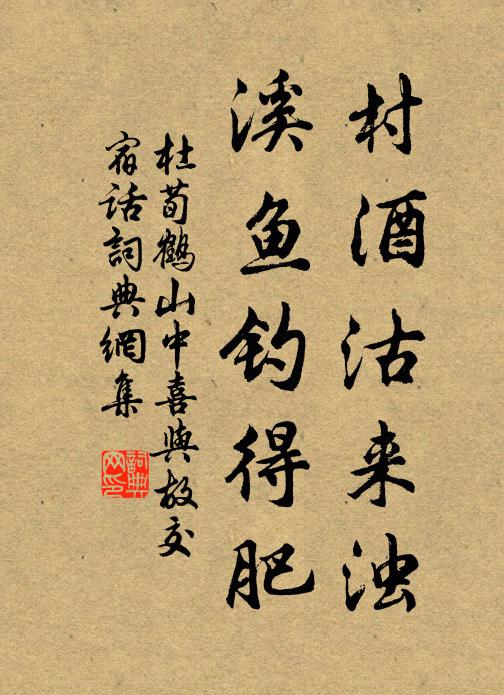 村酒沽来浊
溪鱼钓得肥
杜荀鹤山中喜與故交
宿话詞典網集
詞典
网印